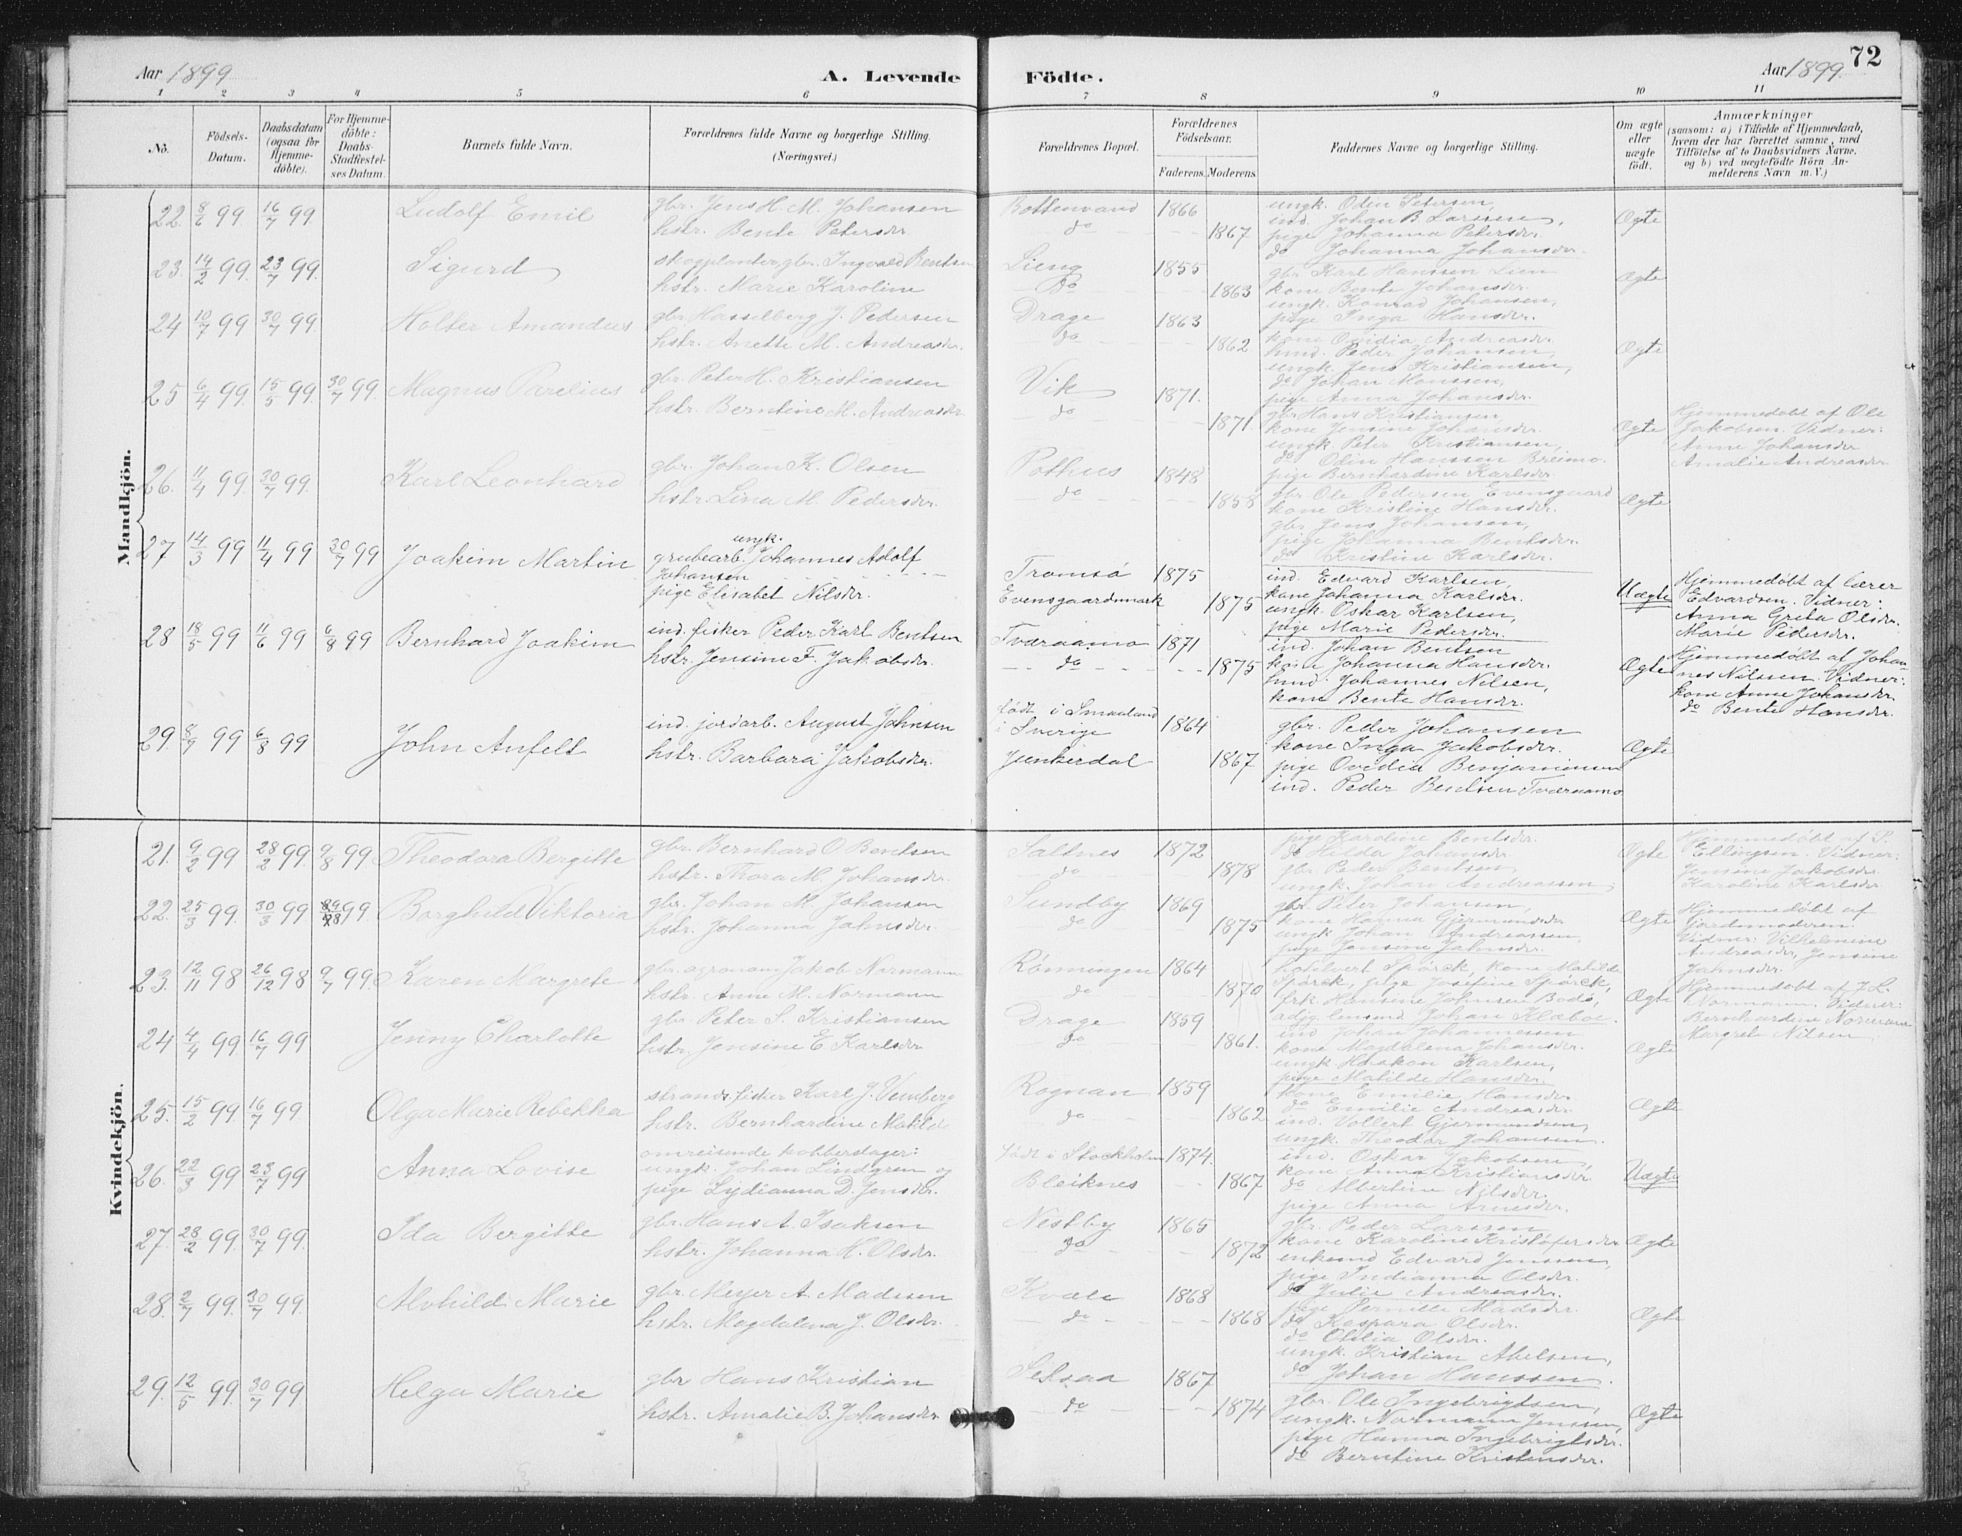 Aar 1899
A. Levende Födte.
Aar 1899.
72
1 2 3 4 5 6 7 8 9 10 11
No.
Födsels-Datum.
Daabsdatum (ogsaa for Hjemme-döbte).
For Hjemme-döbte: Daabs-Stadfæstel-ses Datum.
Barnets fulde Navn.
Forældrenes fulde Navne og borgerlige Stilling. (Næringsvei.)
Forældrenes Bopæl.
Forældrenes Födselsaar.
Faderens. Moderens.
Faddernes Navne og borgerlige Stilling.
Om ægte eller uægte födt.
Anmærkninger
(saasom: a) i Tilfælde af Hjemmedaab, hvem der har forrettet samme, med Tilföielse af to Daabsvidners Navne, og b) ved uægtefödte Börn An-melderens Navn m. V.)
Mandkjön.
22. 8/6 99. 16/7 99 Ludolf Emil
gbr. Jens H. M. Johansen
hstr. Bente Petersdr.
Bottenvand do 1866 1867
ungk. Odin Petersen,
ind. Johan B. Larssen,
pige Johanna Petersdr.
do Johanna Johansdr.
Ægte
23. 14/2 99. 23/7 99. Sigurd
skogplanter, gbr. Ingvald Bentsen
hstr. Marie Karoline
Lieng Do 1855 1863
gbr. Karl Hanssen Lien
kone Bente Johansdr.
ungk. Konrad Johansen,
pige Inga Hansdr.
Ægte
24 10/7 99 30/7 99. Holter Amandus
gbr. Hasselberg J. Pedersen
hstr. Anette M. Andreasdr.
Drage do 1863 1862
kone Ovidia Andreasdr.
hmd. Peder Johansen,
ungk. Jens Kristiansen,
do Johan Monssen,
pige Anna Johansdr.
Ægte
25 6/4 99. 15/5 99. 30/7 99. Magnus Parelius
gbr. Peter H. Kristiansen
hstr. Berntine M. Andreasdr
Vik do 1871. 1871.
gbr. Hans Kristiansen,
kone Jensine Johansdr.
ungk Peter Kristiansen,
do Odin Hanssen Breimo.
pige Bernhardine Karlsdr
Ægte
Hjemmedøbt af Ole
Jakobsen. Vidner:
Anne Johansdr
Amalie Andreasdr
26. 11/4 99. 30/7 99. Karl Leonhard
gbr. Johan K. Olsen
hstr. Lina M. Pedersdr.
Pothus do 1848 1858
gbr. Ole Pedersen Evensgaard
kone Kristine Hansdr.
gbr. Jens Johansen,
pige Johanna Bentsdr.
do Kristine Karlsdr.
Ægte
27 14/3 99 11/4 99 30/7 99 Joakim Martin
ungk.
grubearb. Johannes Adolf
Johansen
pige Elisabet Nilsdr.
Tromsø 1875
Evensgaardsmark 1875
ind. Edvard Karlsen,
kone Johanna Karlsdr.
ungk. Oskar Karlsen,
pige Marie Pedersdr.
Uægte
Hjemmedøbt af lærer
Edvardsen. Vidner:
Anna Greta Olsdr.
Marie Pedersdr.
28 18/5 99 11/6 99 6/8 99 Bernhard Joakim
ind. fisker Peder Karl Bentsen
hstr. Jensine F. Jakobsdr.
Tværaamo do 1871 1875
ind. Johan Bentsen
kone Johanna Hansdr.
hmd. Johannes Nilsen,
kone Bente Hansdr.
Ægte
Hjemmedøbt af Johan-
nes Nilssen. Vidner:
kone Anne Johansdr
do Bente Hansdr.
29. 8/7 99 6/8 99 John Anfelt
ind. jordarb. August Johnsen
hstr. Barbara Jakobsdr.
født i Smaaland
i Sverige 1864
Junkerdal 1867
gbr. Peder Johansen
kone Inga Jakobsdr.
pige Ovedia Benjaminsen
ind. Peder Bentsen Tværaamo
Ægte
Kvindekjön.
21. 9/2 99 28/2 99. 9/8 99. Theodora Bergitte
gbr. Bernhard O. Bentsen
hstr. Thora M. Johansdr.
Saltnes do 1872 1878
pige Karoline Bentsdr.
do Hulda Johansdr
gbr. Peder Bentsen,
ungk. Johan Andreassen,
Ægte
Hjemmedøbt af P.
Ellingsen. Vidner:
Jensine Jakobsdr
Karoline Karlsdr
22. 25/3 99. 30/3 99 99. Borghild Viktoria
gbr. Johan M. Johansen
hstr. Johanna Jahnsdr.
Sundby do 1869 1875
gbr. Peter Johansen,
kone Hanna Gjermundsdr
ungk. Johan Andreassen,
pige Jensine Jahnsdr.
Ægte
Hjemmedøbt af
jordemoderen.
Vidner: Vilhelmine
Andreasdr, Jensine
Jahnsdr.
23. 12/11 98 26/12 98 9/7 99. Karen Margrete
gbr. agronom Jakob Normann
hstr. Anne M. Normann
Rønningen do 1864 1870
Spørck, kone Matilde
Spørck, pige Josefine Spørck,
frk. Hansine Johnsen Bodø,
Johan Klæboe.
Ægte
Hjemmedøbt af J. L.
Normann. Vidner:
Bernhardine Normann
Margret Nilsen
24 4/4 99 16/7 99 Jenny Charlotte
gbr. Peter S. Kristiansen
hstr. Jensine E Karlsdr
Drage do 1859 1861.
ind Johan Johannessen
kone Magdalena Johansdr.
ungk Haakon Karlsen,
pige Matilde Hansdr.
Ægte
25. 15/2 99. 16/7 99 Olga Marie Rebekka
strands. fisker Karl J. Venberg
hstr. Bernhardine Matilde
Rognan do 1859 1862
kone Emilie Hansdr
do Emilie Andreasdr
ind. Vollert Gjermundsen,
ungk. Theodor Johansen.
Ægte
26. 22/3 99 23/7 99 Anna Lovise
omreisende kobberslager:
ungk. Johan Lindgren og
pige Lydianna D. Jensdr.
født i Stockholm 1874.
Bleiknes 1867
ind. Oskar Jakobsen,
kone Anna Kristiansdr.
do Albertine Nilsdr,
pige Anna Arnesdr.
Uægte
27. 28/2 99. 30/7 99. Ida Bergitte
gbr. Hans A. Isaksen
hstr. Johanna H. Olsdr.
Nestby do 1865 1872
gbr. Peder Larssen
kone Karoline Kristofersdr
enkemd Edvard Jenssen,
pige Indianna Olsdr.
do Julie Andreasdr.
Ægte
28. 2/7 99. 30/7 99. Alvhild Marie
gbr. Meyer A. Madsen
hstr. Magdalena J. Olsdr.
Kvæle do 1868 1868
pige Pernille Madsdr.
do Kaspara Olsdr.
do Otilia Olsdr.
ungk. Kristian Abelsen,
do Johan Hanssen.
Ægte
29. 12/5 99. 30/7 99. Helga Marie
gbr Hans Kristian
hstr. Amalie B. Johansdr
Setsaa do 1867 1874
gbr. Ole Ingebrigtsen,
ungk. Normann Jenssen,
pige Hanna Ingebrigtsdr.
do Berntine Kristensdr.
Ægte